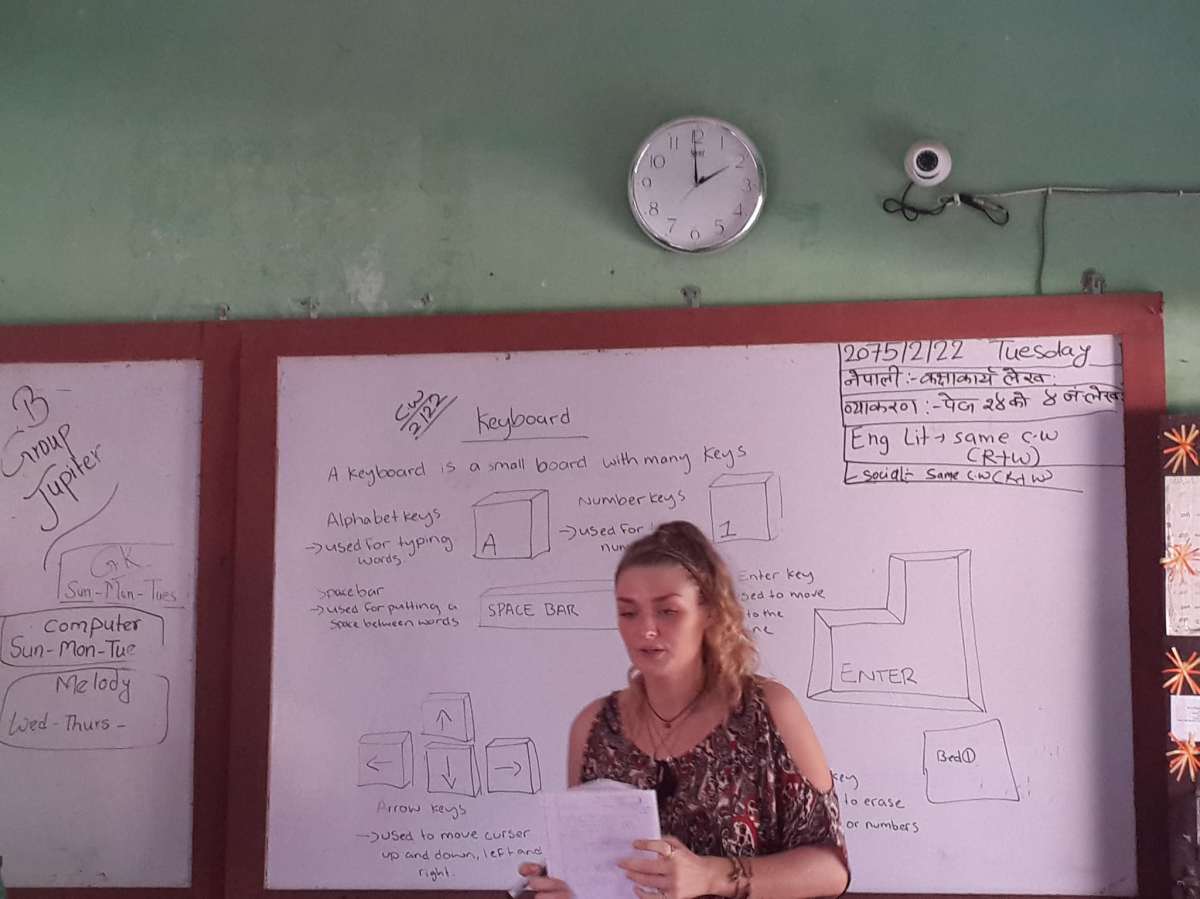 B
Group
Jupiter
GK
Sun-Mon-Tues
Computer
Sun-Mon-Tue
Melody
Wed-Thurs-
CW
2/22
Keyboard
A keyboard is a small board with many keys
Alphabet keys
→ used for typing
words.
A
Number keys
→ used for
1
Spacebar
→ used for putting a
space between words
SPACE BAR
Enter key
to move
to the
ENTER
↑
← ↓ →
Arrow keys
→ used to move curser
up and down, left and
right.
key
to erase
or numbers
2075/2/22 Tuesday
नेपाली :- कक्षाकार्य लेख
व्याकरण :- पेज २४ को ४ नं लेख
Eng Lit → same c.w
(R+W)
Social:- same c.w (R+W)
12
1
2
3
4
5
6
7
8
9
10
11